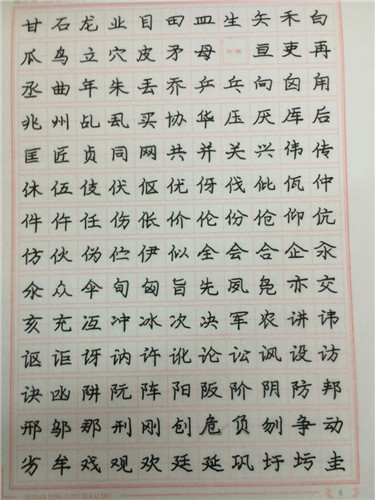 甘石龙业目田皿生矢禾白
瓜鸟立穴皮矛母亘吏再
丞曲年朱丢乔乒乓向囟甪
兆州乩乱买协华压厌厍后
匡匠贞同网共并关兴伟传
休伍伎伏伛优伢伐仳佤仲
件仵任伤伥价伦份伧仰伉
仿伙伪伫伊似全会合企汆
氽众伞旬匈旨先夙凫亦交
亥充冱冲冰次决军农讲讳
讴讵讶讷许讹论讼讽设访
诀凶阱阮阵阳阪阶阴防邦
邢邬那刑刚创危负刎争动
劣牟戏观欢廷延巩圩圬圭